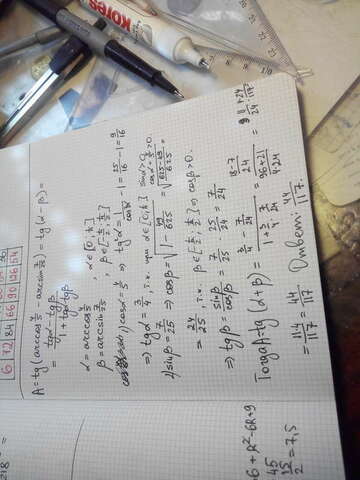 Kores
6 72 84 66 90 106 64
A = tg (arccos 4/5 - arcsin 7/25) = tg(α-β) =
= tgα - tgβ / 1 + tgα tgβ
α = arccos 4/5 , α ∈ [0; π]
β = arcsin 7/25 , β ∈ [-π/2; π/2]
1) cosα = 4/5 ⇒ tg²α = 1/cos²α - 1 = 25/16 - 1 = 9/16
⇒ tgα = 3/4, т.к. при α ∈ [0; π]
2) sinβ = 7/25 ⇒ cosβ = √1 - 49/625 = √625-49/625 =
= 24/25, т.к. β ∈ [-π/2; π/2] ⇒ cosβ > 0.
⇒ tgβ = sinβ/cosβ = 7/25 · 25/24 = 7/24
Тогда A = tg (α+β) = 3/4 - 7/24 / 1 + 3/4 · 7/24 = 18-7/24 / 96+21/4·24 =
= 44/117
Ответ: 44/117.
6 + R² - 6R + 9
15/2 = 7,5